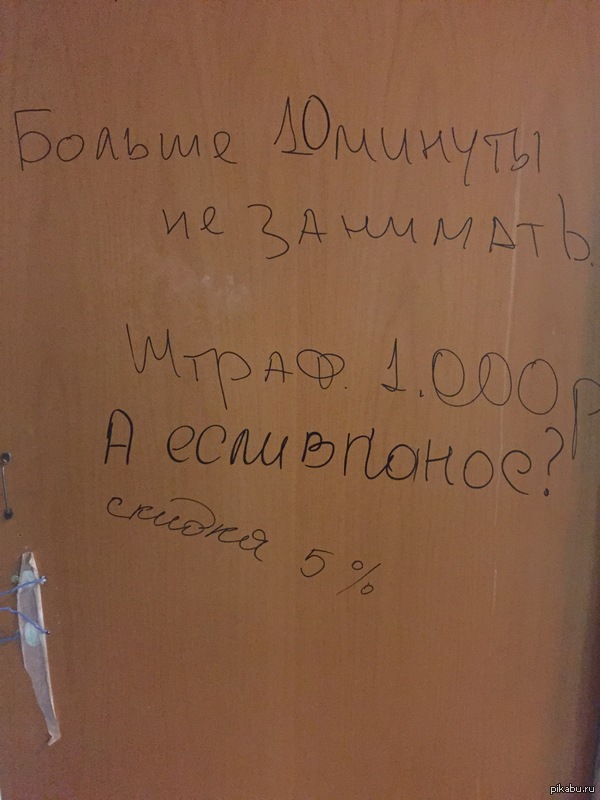 Больше 10минуты
не занимать.
Штраф. 1.000р
А если в понос?
скидка 5%
pikabu.ru